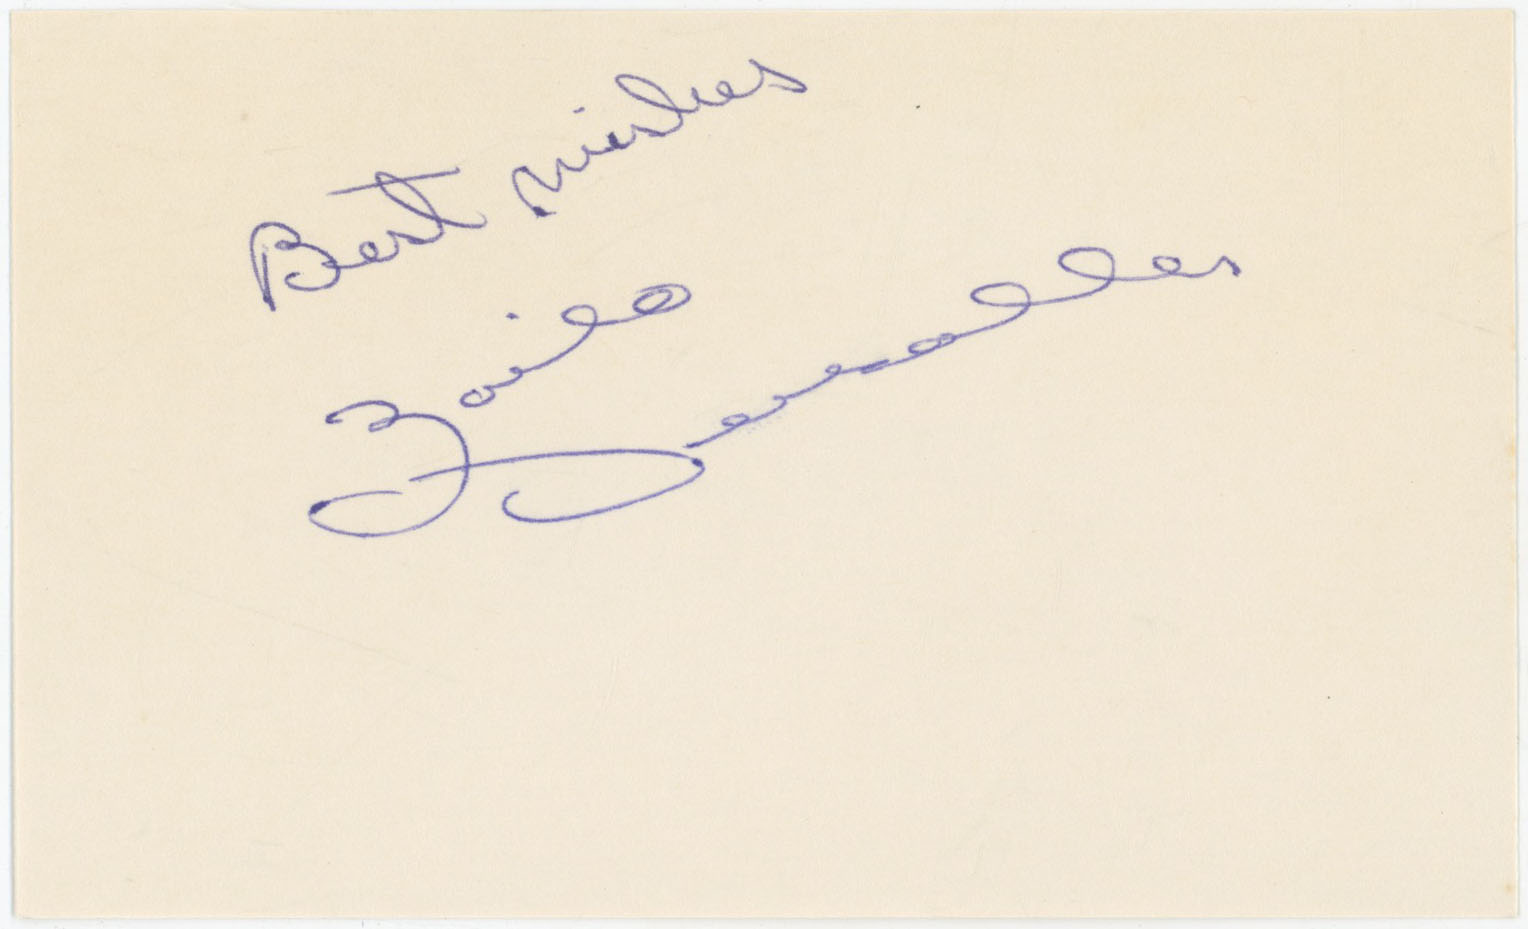 Best wishes
Zoilo
Versalles